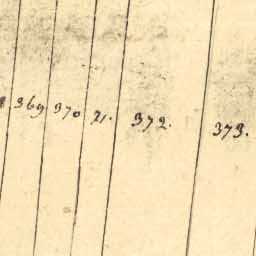 369 370 71. 372. 373.